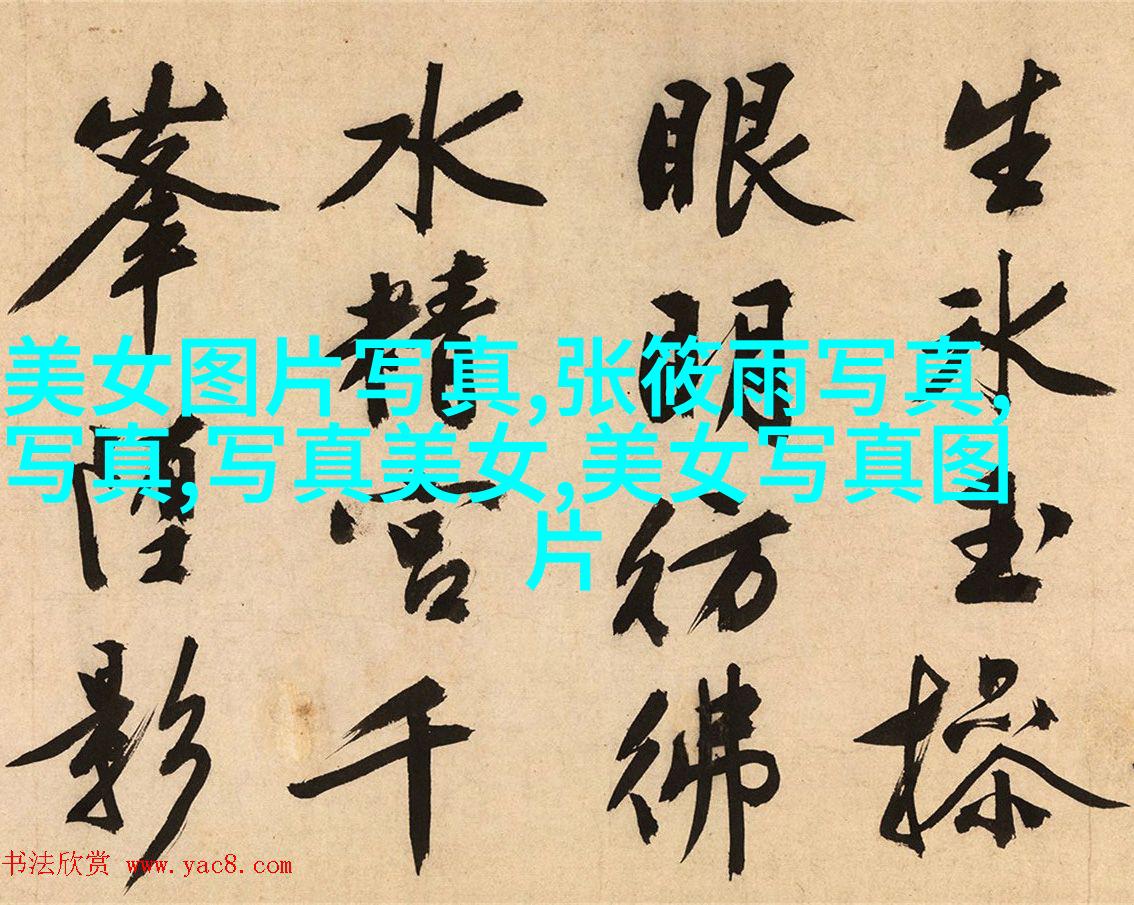 生冰玉操
眼明彷彿
水精宫千
峯影
美女图片写真,张筱雨写真,
写真,写真美女,美女写真图
片
书法欣赏 www.yac8.com